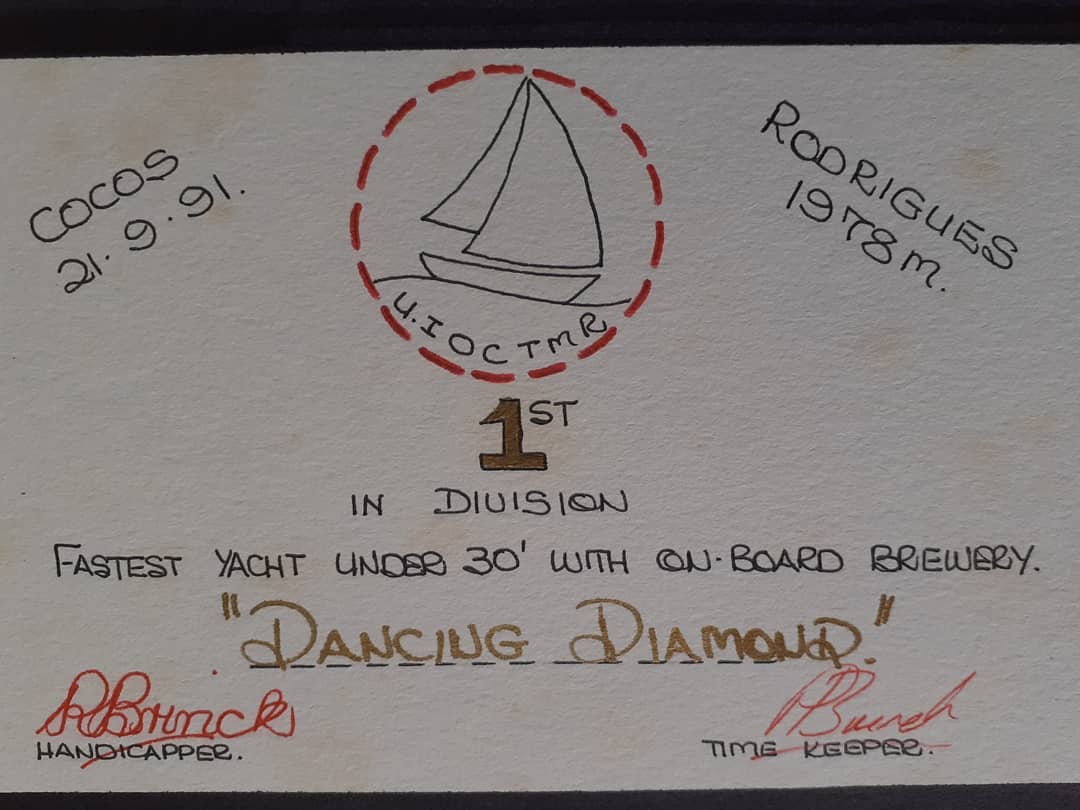 COCOS
21.9.91.
RODRIGUES
1978 m.
U.I OCTMR
1ST
IN DIVISION
FASTEST YACHT UNDER 30' WITH ON-BOARD BREWERY.
"DANCING DIAMOND."
HANDICAPPER.
TIME KEEPER.